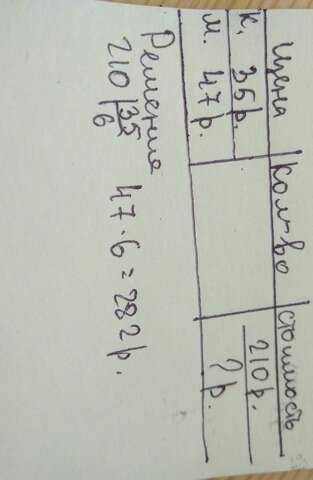 Цена кол-во стоимость
к. 35 р. 210 р.
м. 47 р. ? р.
Решение
210 | 35 47 · 6 = 282 р.
6